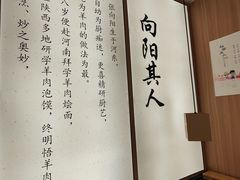 向阳其人
张向阳生于河东，
自幼为厨痴迷，更喜精研厨艺，
羊肉的做法为最。
八岁便赴河南拜学羊肉烩面，
陕西多地研学羊肉泡馍，终明悟羊肉
之奥妙，